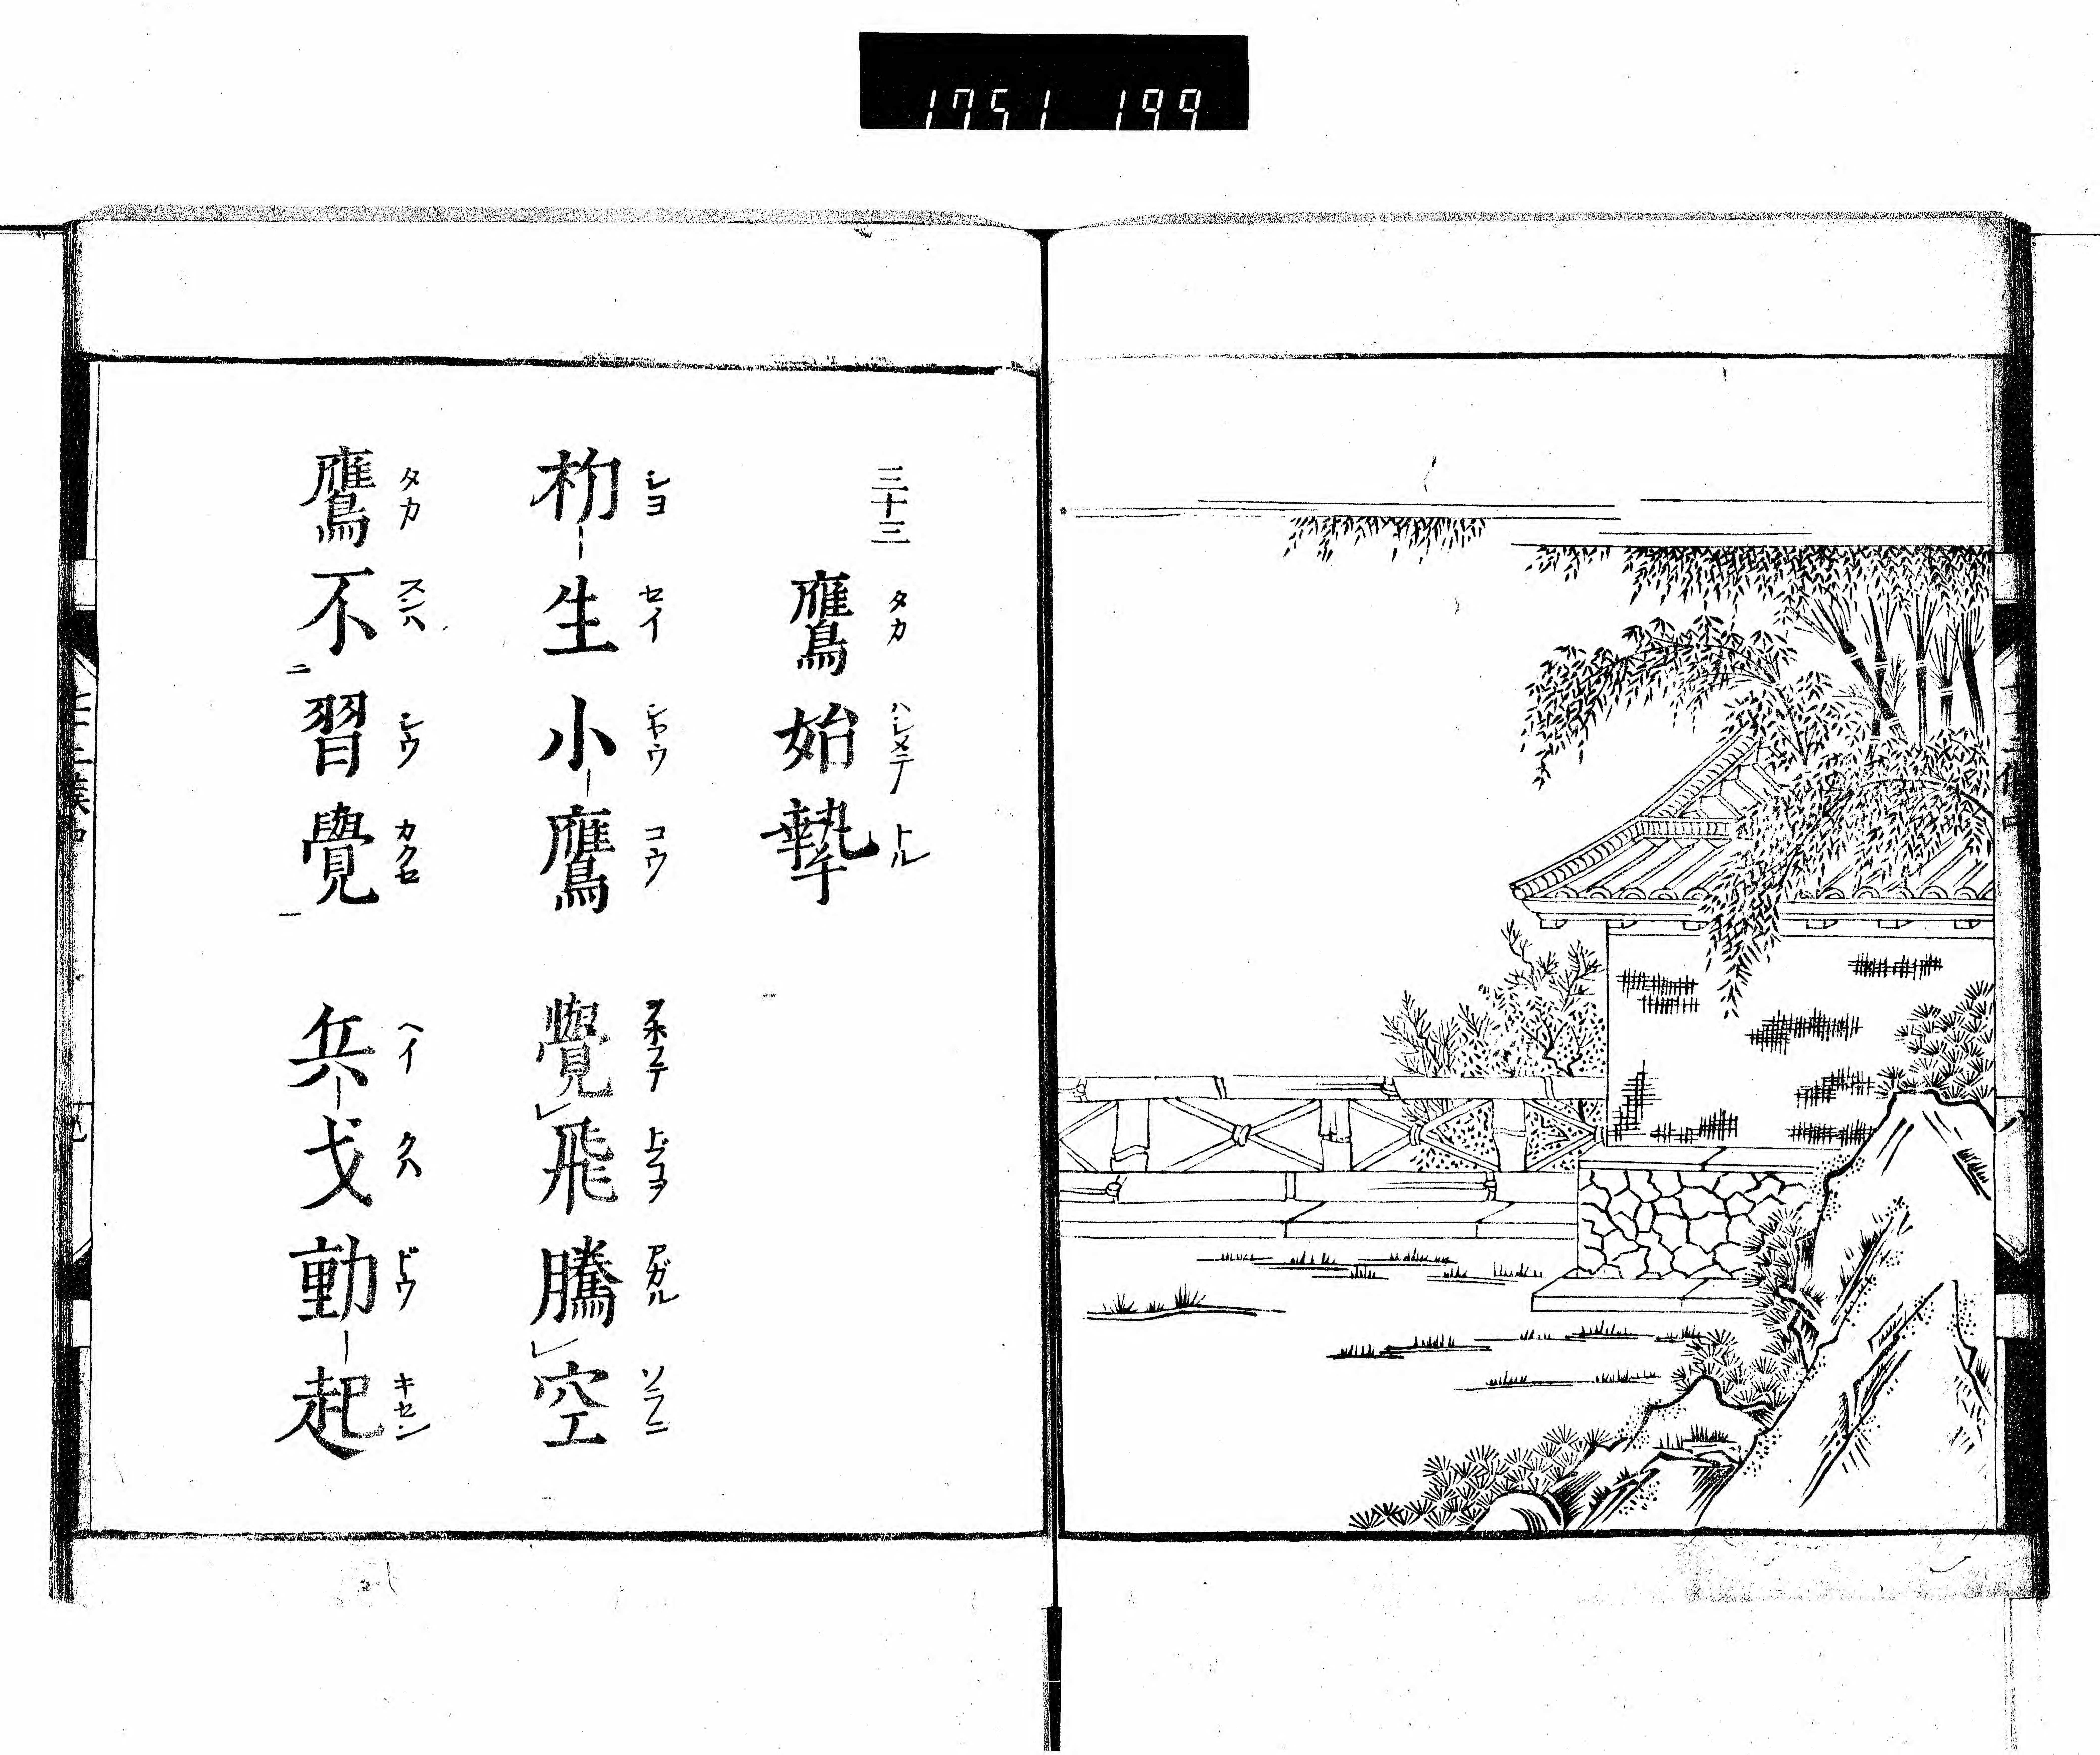 1751 199
七十二候中
八
三十三
鷹始摯
タカ ハシメテ トル
初生小鷹 覺飛騰空
シヨ セイ シヤウ コウ アガル ソラニ
鷹不習覺 兵戈動起
タカ スンハ シウ カクセ ヘイ クハ ドウ キセン
七十二候中
九